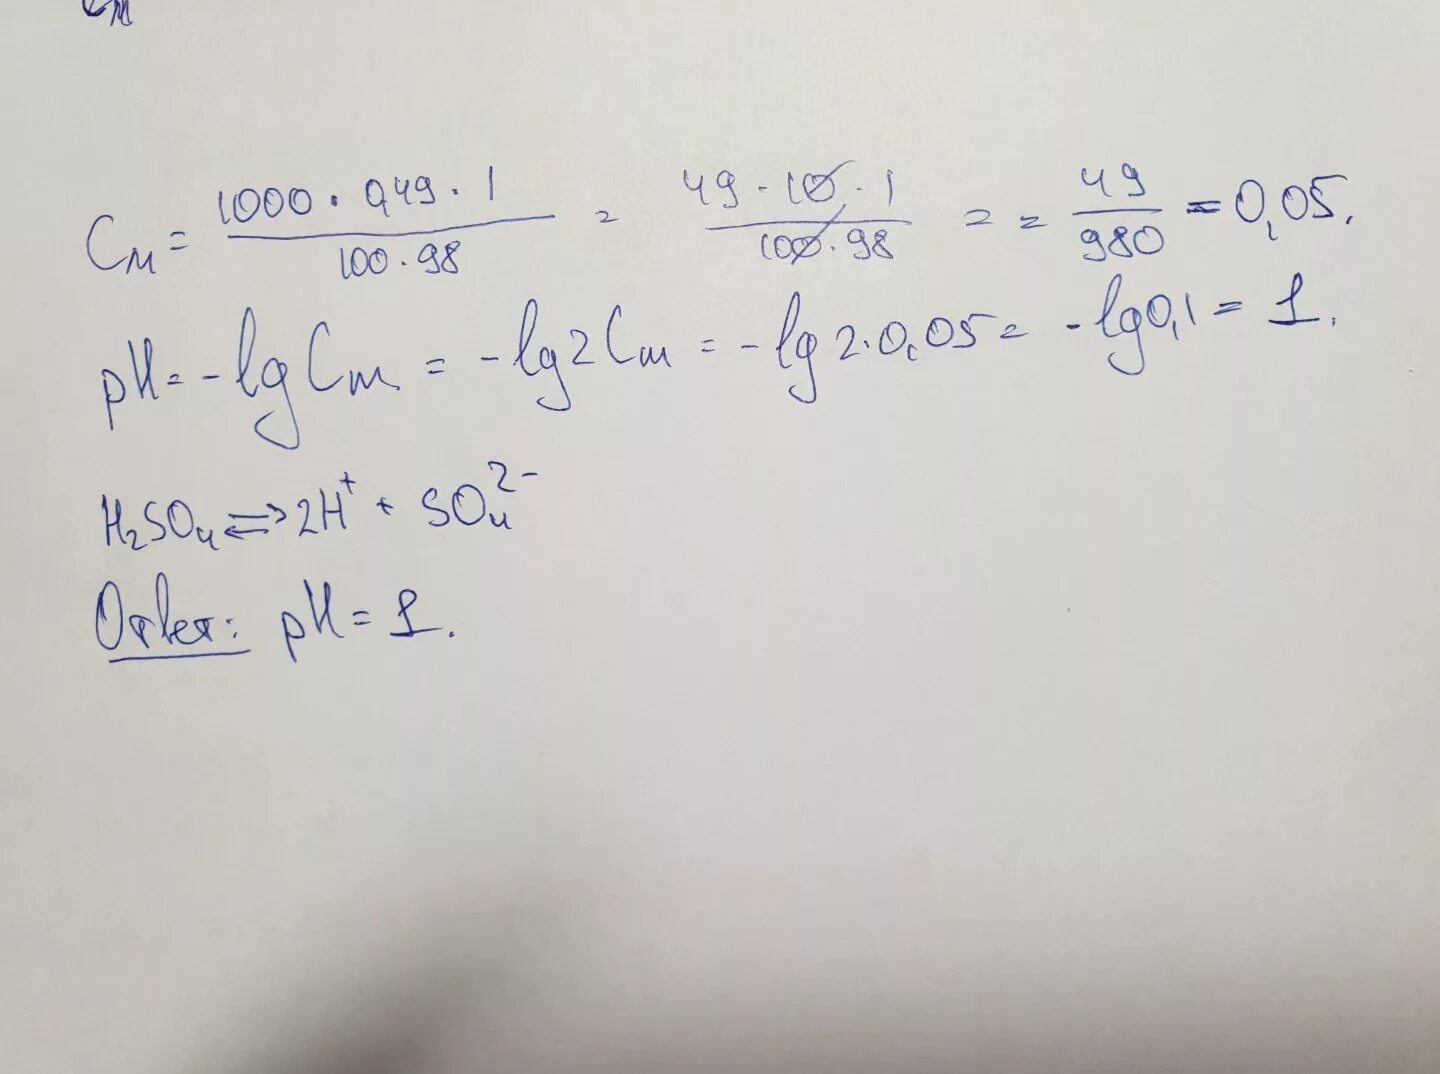 Cм
Cм = 1000 · 0,49 · 1 / 100 · 98 = 49 · 10 · 1 / 100 · 98 = = 49 / 980 = 0,05.
pH = -lg Cм = -lg 2 Cм = -lg 2 · 0,05 = -lg 0,1 = 1.
H₂SO₄ ⇌ 2H⁺ + SO₄²⁻
Ответ: pH = 1.